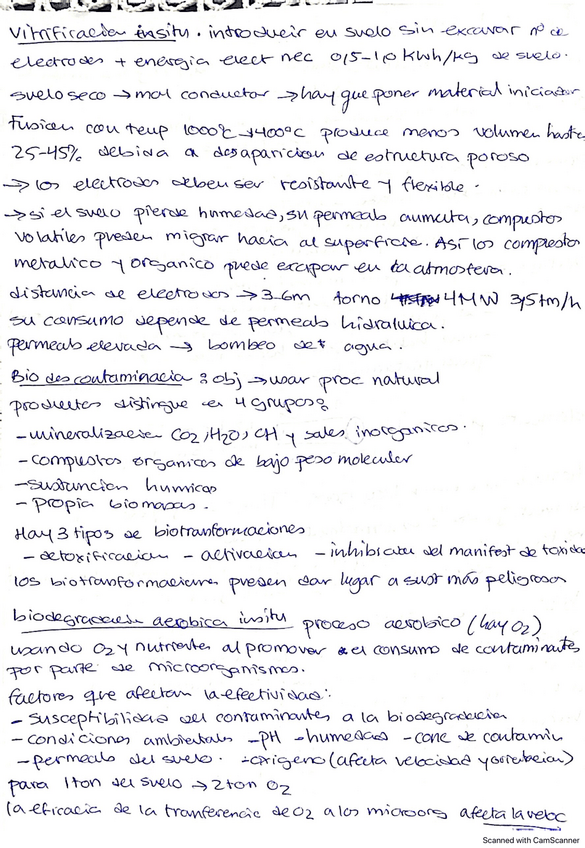 Vitrificacion insitu. introducir en suelo sin excavar nº de
electrodos + energia elect nec 0,5-1,0 Kwh/kg de suelo.
suelo seco → mal conductor → hay que poner material iniciador
Fusion con temp 1000ºC → 1400ºC produce menos volumen hasta
25-45% debida a desaparicion de estructura poroso
→ los electrodos deben ser resistante y flexible.
→ si el suelo pierde humedad, su permeab aumata, compustos
volatiles pueden migrar hacia al superficie. Así los compuesto
metalico y organico puede escapar en la atmosfera.
distancia de electrodos → 3-6m torno 4MW 3,5tm/h
su consumo depende de permeab hidraluica.
permeab elevada → bombeo de agua.
Bio descontaminacia: obj → usar proc natural
productos distingue en 4 grupos:
- mineralizacion CO2, H2O, CH y sales inorganicos.
- compustos organicos de bajo peso molecular
- sustancian humicas
- propia biomasas.
Hay 3 tipos de biotranformaciones
- detoxificacion - activacion - inhibicion del manifest de toxida
los biotransformaciones pueden dar lugar a sust más peligrosa
biodegradacion aerobica insitu proceso aerobico (hay O2)
usando O2 y nutrientes al promover el consumo de contaminantes
por parte de microorganismos.
factores que afectan la efectividad:
- susceptibilidad del contaminantes a la biodegradacion
- condiciones ambientals - PH - humedad - conc de contamin
- permeab del suelo. - oxigeno (afecta velocidad y orientacion)
para 1ton del suelo → 2ton O2
la eficacia de la tranferencia de O2 a los microorg afecta la veloc
Scanned with CamScanner